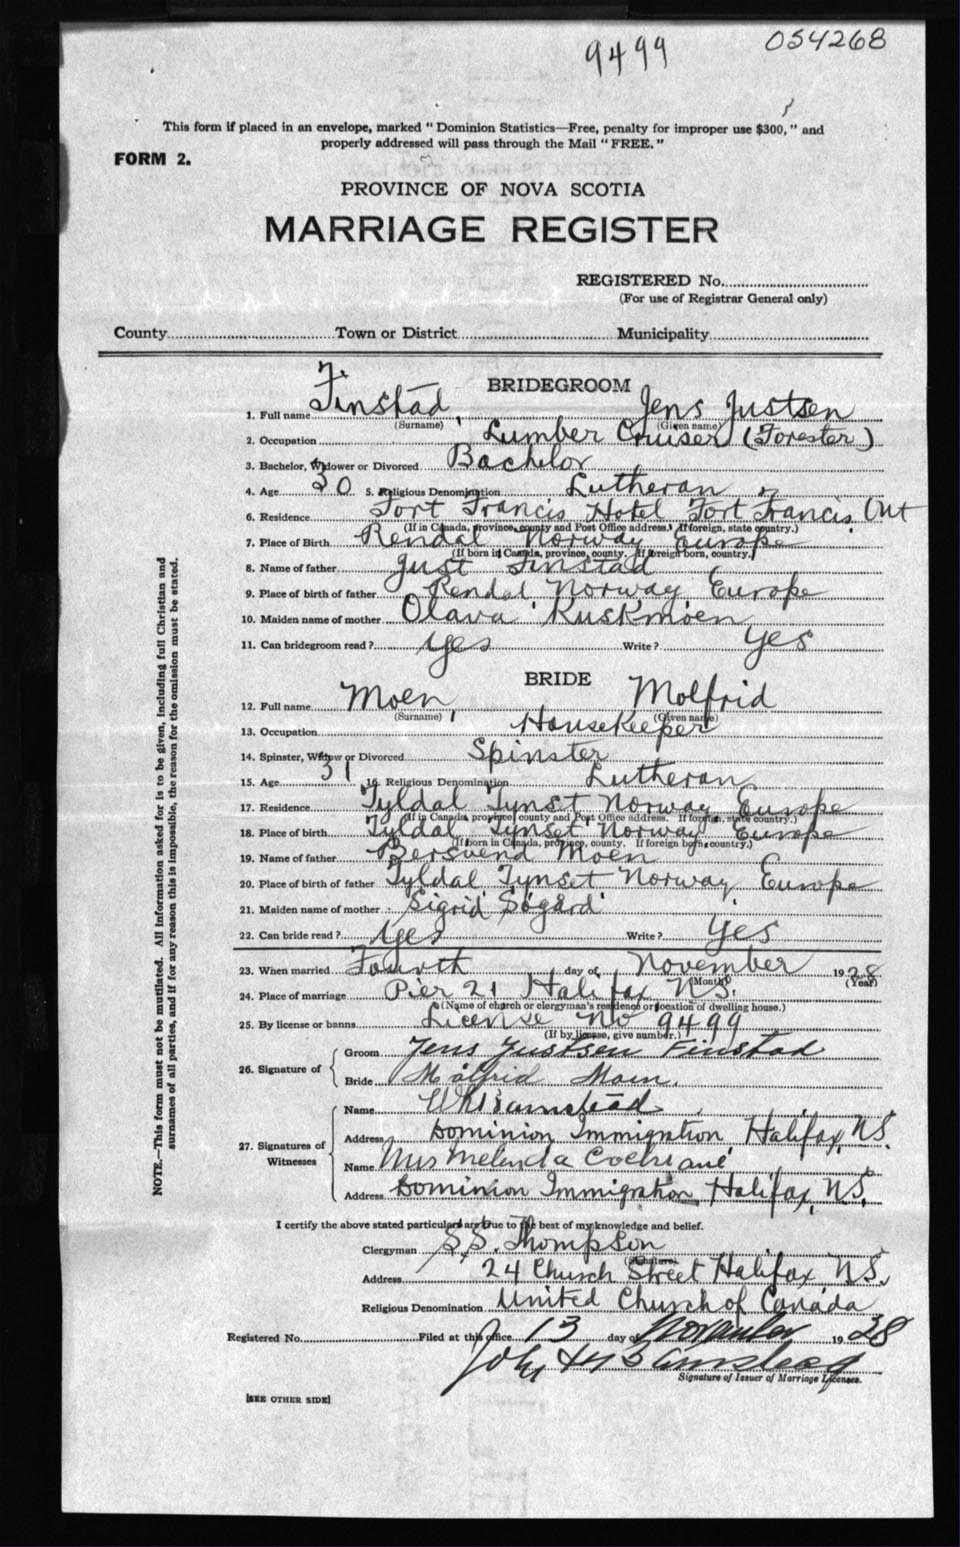 9499
054268
This form if placed in an envelope, marked "Dominion Statistics—Free, penalty for improper use $300," and
properly addressed will pass through the Mail "FREE."
FORM 2.
PROVINCE OF NOVA SCOTIA
MARRIAGE REGISTER
REGISTERED No.
(For use of Registrar General only)
County Town or District Municipality
BRIDEGROOM
1. Full name Finstad, Jens Justsen
(Surname) (Given name)
2. Occupation Lumber Cruiser (Forester)
3. Bachelor, Widower or Divorced Bachelor
4. Age 30 5. Religious Denomination Lutheran
6. Residence Fort Francis Hotel Fort Francis Ont
(If in Canada, province, county and Post Office address. If foreign, state country.)
7. Place of Birth Rendal Norway Europe
(If born in Canada, province, county. If foreign born, country.)
8. Name of father Just Finstad
9. Place of birth of father Rendal Norway Europe
10. Maiden name of mother Olava Kuskmoen
11. Can bridegroom read? Yes Write? Yes
BRIDE
12. Full name Moen, Molfrid
(Surname) (Given name)
13. Occupation Housekeeper
14. Spinster, Widow or Divorced Spinster
15. Age 31 16. Religious Denomination Lutheran
17. Residence Tyldal Tynset Norway Europe
(If in Canada, province, county and Post Office address. If foreign, state country.)
18. Place of birth Tyldal Tynset Norway Europe
(If born in Canada, province, county. If foreign born, country.)
19. Name of father Bersvend Moen
20. Place of birth of father Tyldal Tynset Norway Europe
21. Maiden name of mother Sigrid Søgård
22. Can bride read? Yes Write? Yes
23. When married Fourth day of November 1938
(Month) (Year)
24. Place of marriage Pier 21 Halifax N.S.
(Name of church or clergyman's residence or location of dwelling house.)
25. By license or banns License No 9499
(If by license, give number.)
26. Signature of Groom Jens Justsen Finstad
Bride Målfrid Moen.
27. Signatures of Witnesses
Name
Address Dominion Immigration Halifax, N.S.
Name Mrs Melinda Cochrane
Address Dominion Immigration, Halifax, N.S.
I certify the above stated particulars are true to the best of my knowledge and belief.
Clergyman S.S. Thompson
(Signature)
Address 24 Church Street Halifax N.S.
Religious Denomination United Church of Canada
Registered No. Filed at this office 13 day of November 1938
Signature of Issuer of Marriage Licenses.
[SEE OTHER SIDE]
NOTE.—This form must not be mutilated. All information asked for is to be given, including full Christian and
surnames of all parties, and if for any reason this is impossible, the reason for the omission must be stated.